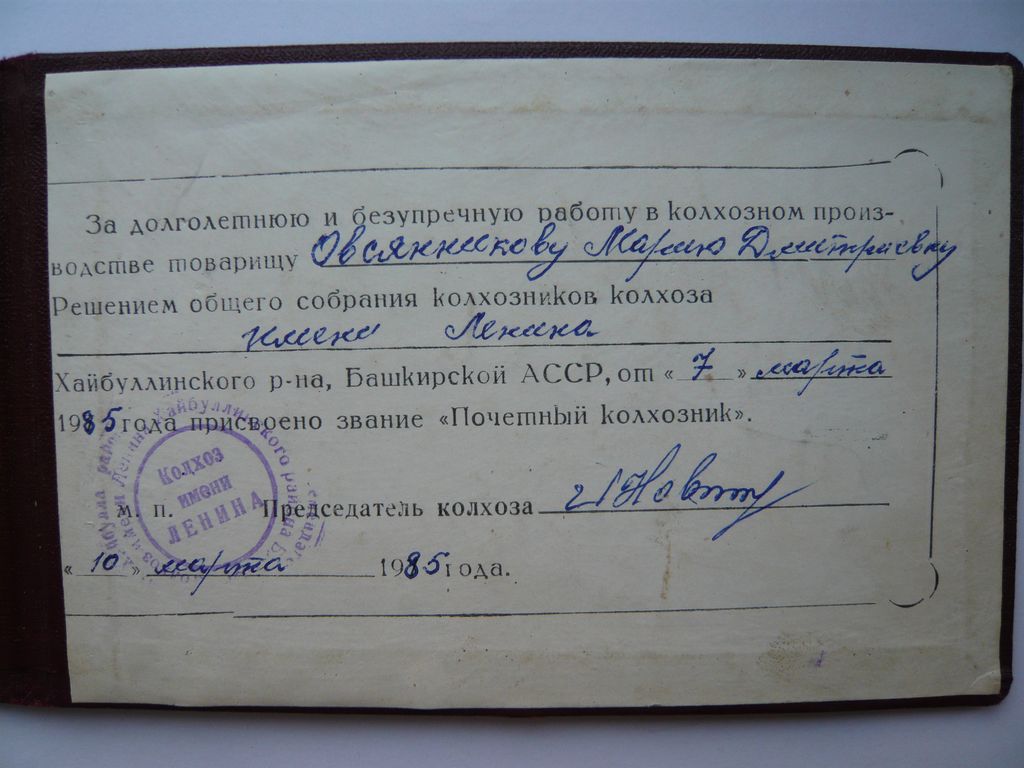 За долголетнюю и безупречную работу в колхозном произ-
водстве товарищу Овсянникову Марию Дмитриевну
Решением общего собрания колхозников колхоза
имени Ленина
Хайбуллинского р-на, Башкирской АССР, от « 7 » марта
1985 года присвоено звание «Почетный колхозник».
Колхоз
имени
ЛЕНИНА
м. п. Председатель колхоза
« 10 » марта 1985 года.